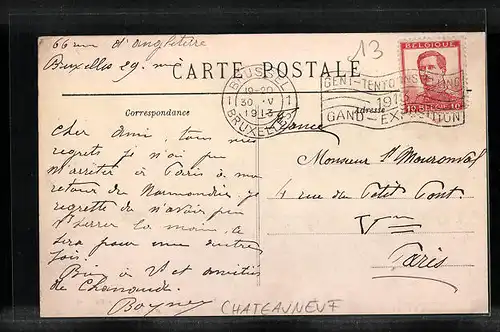 66 rue d'Angleterre
Bruxelles 29 mai
13
CARTE POSTALE
BELGIQUE
BRUSSEL
1 19-20 1
30 V
1913
BRUXELLES
GENT-TENTOONSTELLING
1913
GAND-EXPOSITION
10 10
Correspondance
Adresse
France
Cher Ami, tous mes
regrets je n'ai pu
m'arrêter à Paris à mon
retour de Normandie, je
regrette de n'avoir pu
Serrer la main, ce
sera pour une autre
fois.
Bien à Vt et amitiés
de Chanaude.
Monsieur Mauronval
4 rue du Petit Pont.
Vme
Paris
CHATEAUNEUF